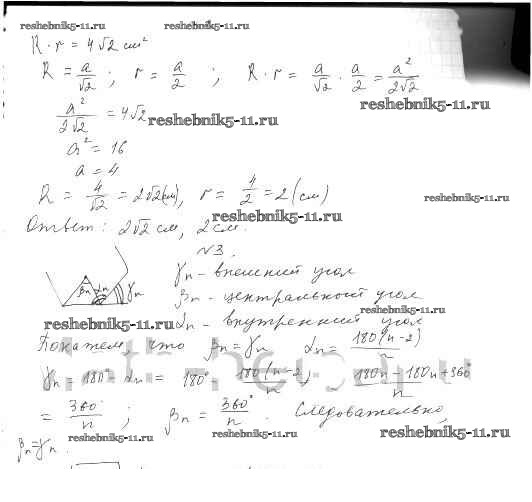 reshebnik5-11.ru reshebnik5-11.ru
R · r = 4√2 см²
R = a/√2 ; r = a/2 ; R · r = a/√2 · a/2 = a²/2√2
reshebnik5-11.ru
a²/2√2 = 4√2
reshebnik5-11.ru
a² = 16
a = 4
R = 4/√2 = 2√2 (см), r = 4/2 = 2 (см)
reshebnik5-11.ru
reshebnik5-11.ru
Ответ: 2√2 см, 2 см.
№3.
βn αn γn
γn - внешний угол
βn - центральный угол
reshebnik5-11.ru
reshebnik5-11.ru
αn - внутренний угол
Покажем, что βn = γn αn = 180(n-2)/n
γn = 180° - αn = 180° - 180(n-2)/n ; 180n - 180n + 360/n
= 360°/n ; βn = 360°/n . Следовательно,
reshebnik5-11.ru reshebnik5-11.ru reshebnik5-11.ru
βn = γn .